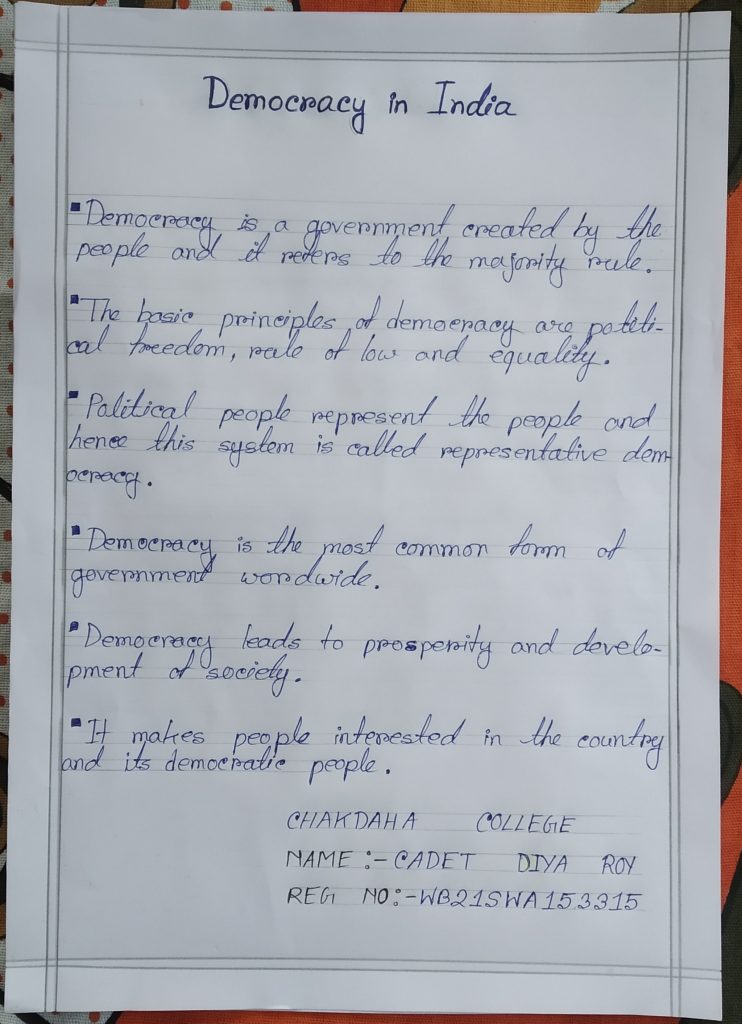 Democracy in India
▪Democracy is a government created by the
people and it refers to the majority rule.
▪The basic principles of democracy are politi-
cal freedom, rule of low and equality.
▪Political people represent the people and
hence this system is called representative dem-
ocracy.
▪Democracy is the most common form of
government wordwide.
▪Democracy leads to prosperity and develo-
pment of society.
▪It makes people interested in the country
and its democratic people.
CHAKDAHA COLLEGE
NAME :- CADET DIYA ROY
REG NO:-WB21SWA153315